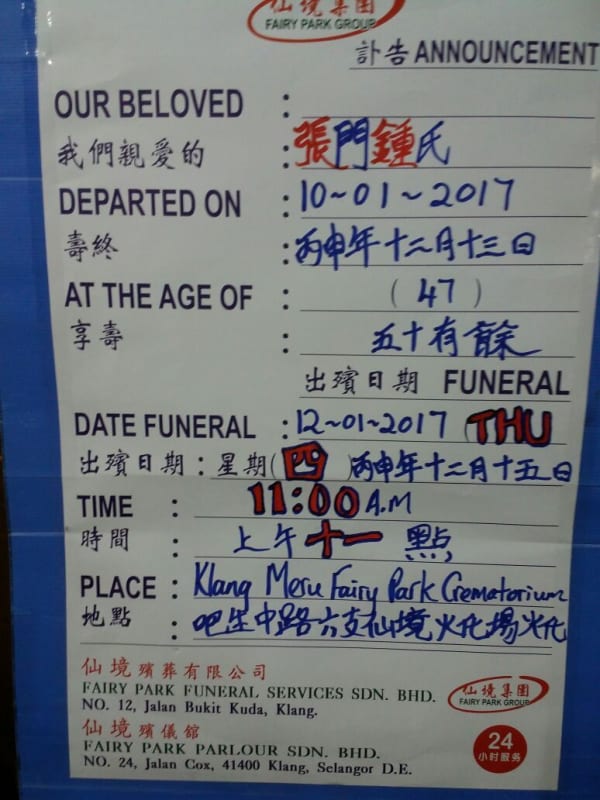 仙境集團
FAIRY PARK GROUP
訃告 ANNOUNCEMENT
OUR BELOVED :
我們親愛的 : 張門鍾氏
DEPARTED ON : 10~01~2017
壽終 : 丙申年十二月十三日
AT THE AGE OF : (47)
享壽 : 五十有餘
出殯日期 FUNERAL
DATE FUNERAL : 12~01~2017 (THU
出殯日期 : 星期(四) 丙申年十二月十五日
TIME : 11:00 A.M
時間 : 上午十一點
PLACE : Klang Meru Fairy Park Crematorium
地點 : 吧生中路六支仙境火化場火化
仙境殯葬有限公司
FAIRY PARK FUNERAL SERVICES SDN. BHD.
NO. 12, Jalan Bukit Kuda, Klang.
仙境集團
FAIRY PARK GROUP
仙境殯儀館
FAIRY PARK PARLOUR SDN. BHD.
NO. 24, Jalan Cox, 41400 Klang, Selangor D.E.
24
小时服务